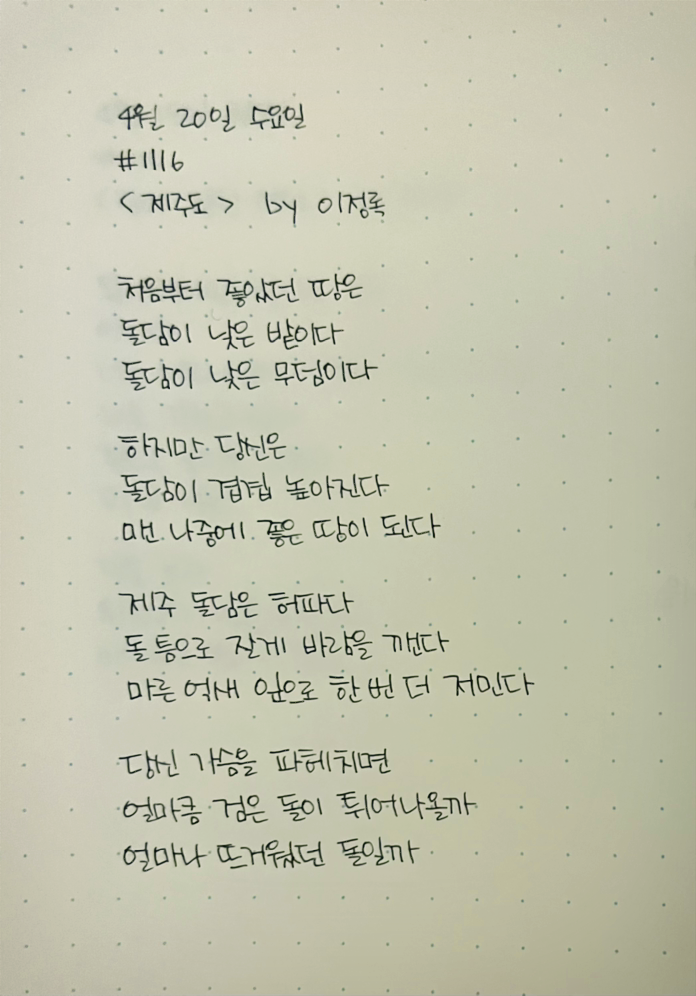 4월 20일 수요일
#1116
<제주도> by 이정록
처음부터 좋았던 땅은
돌담이 낮은 밭이다
돌담이 낮은 무덤이다
하지만 당신은
돌담이 겹겹 높아진다
맨 나중에 좋은 땅이 된다
제주 돌담은 허파다
돌 틈으로 잘게 바람을 깬다
마른 억새 잎으로 한 번 더 저민다
당신 가슴을 파헤치면
얼마큼 검은 돌이 튀어나올까
얼마나 뜨거웠던 돌일까